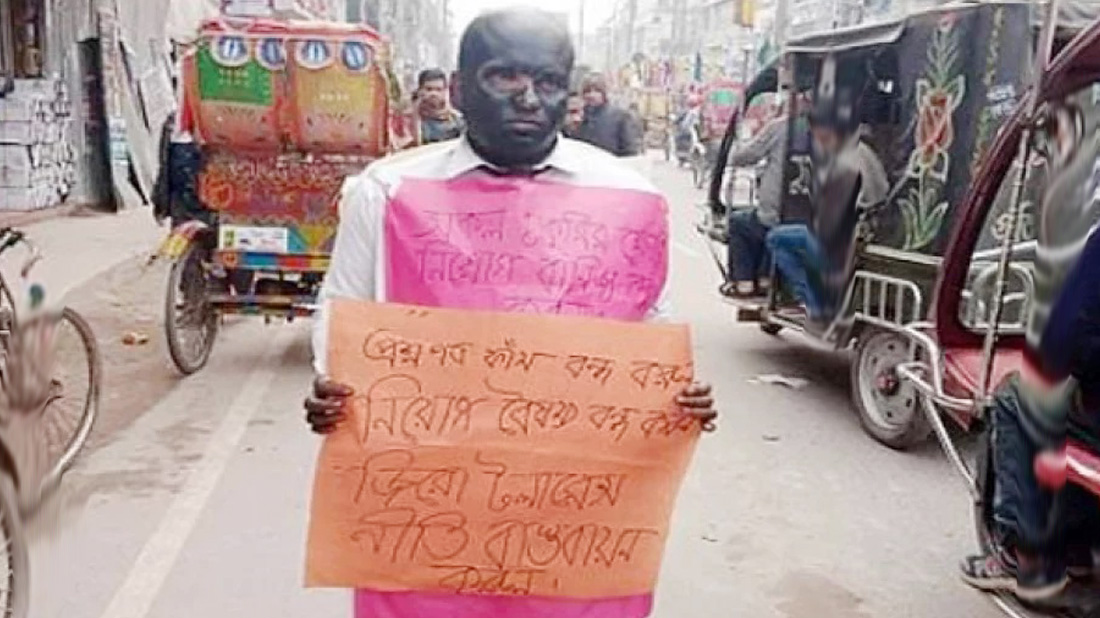 সকল চাকুরির ক্ষেত্রে
নিয়োগ বাণিজ্য বন্ধ
করুন
প্রশ্ন পত্র ফাঁস বন্ধ করুন
নিয়োগ বৈষম্য বন্ধ করুন
জিরো টলারেন্স
নীতি বাস্তবায়ন
করুন।